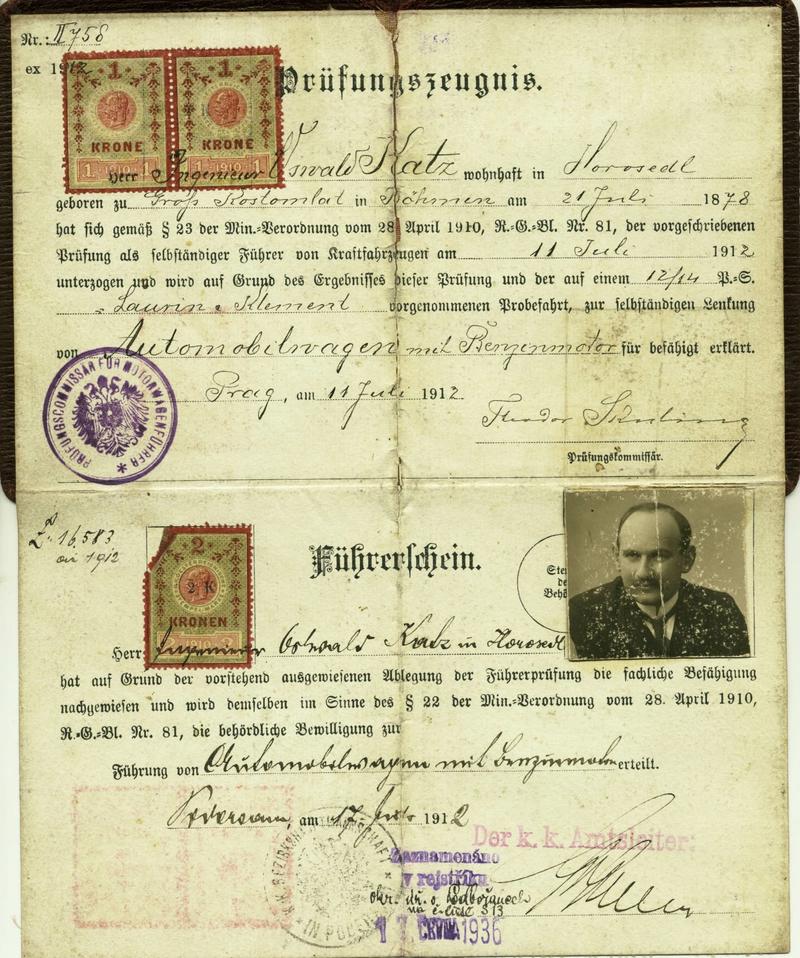 Nr.: II 758
ex 1912
1 KRONE 1 1910 1
1 KRONE 1 1910 1
Prüfungszeugnis.
Herr Ingenieur Oswald Katz wohnhaft in Horosedl
geboren zu Groß Kostomlat in Böhmen am 21 Juli 1878
hat sich gemäß § 23 der Min.-Verordnung vom 28. April 1910, R.-G.-Bl. Nr. 81, der vorgeschriebenen
Prüfung als selbständiger Führer von Kraftfahrzeugen am 11 Juli 1912
unterzogen und wird auf Grund des Ergebnisses dieser Prüfung und der auf einem 12/14 P.-S.
Laurin & Klement vorgenommenen Probefahrt, zur selbständigen Lenkung
von Automobilwagen mit Benzinmotor für befähigt erklärt.
Prag, am 11 Juli 1912
PRÜFUNGSCOMMISSÄR FÜR MOTORWAGENFÜHRER
Theodor
Prüfungskommissär.
16.583
1912
2 2 K KRONEN 1910
Führerschein.
Herr Ingenieur Oswald Katz in Horosedl
hat auf Grund der vorstehend ausgewiesenen Ablegung der Führerprüfung die fachliche Befähigung
nachgewiesen und wird demselben im Sinne des § 22 der Min.-Verordnung vom 28. April 1910,
R.-G.-Bl. Nr. 81, die behördliche Bewilligung zur
Führung von Automobilwagen mit Benzinmotor erteilt.
am 17. 1912
Der k. k. Amtsleiter:
Zaznamenáno
v rejstříku
okr. úř. v Podbořanech
na čísle 513
17. ČERVNA 1936